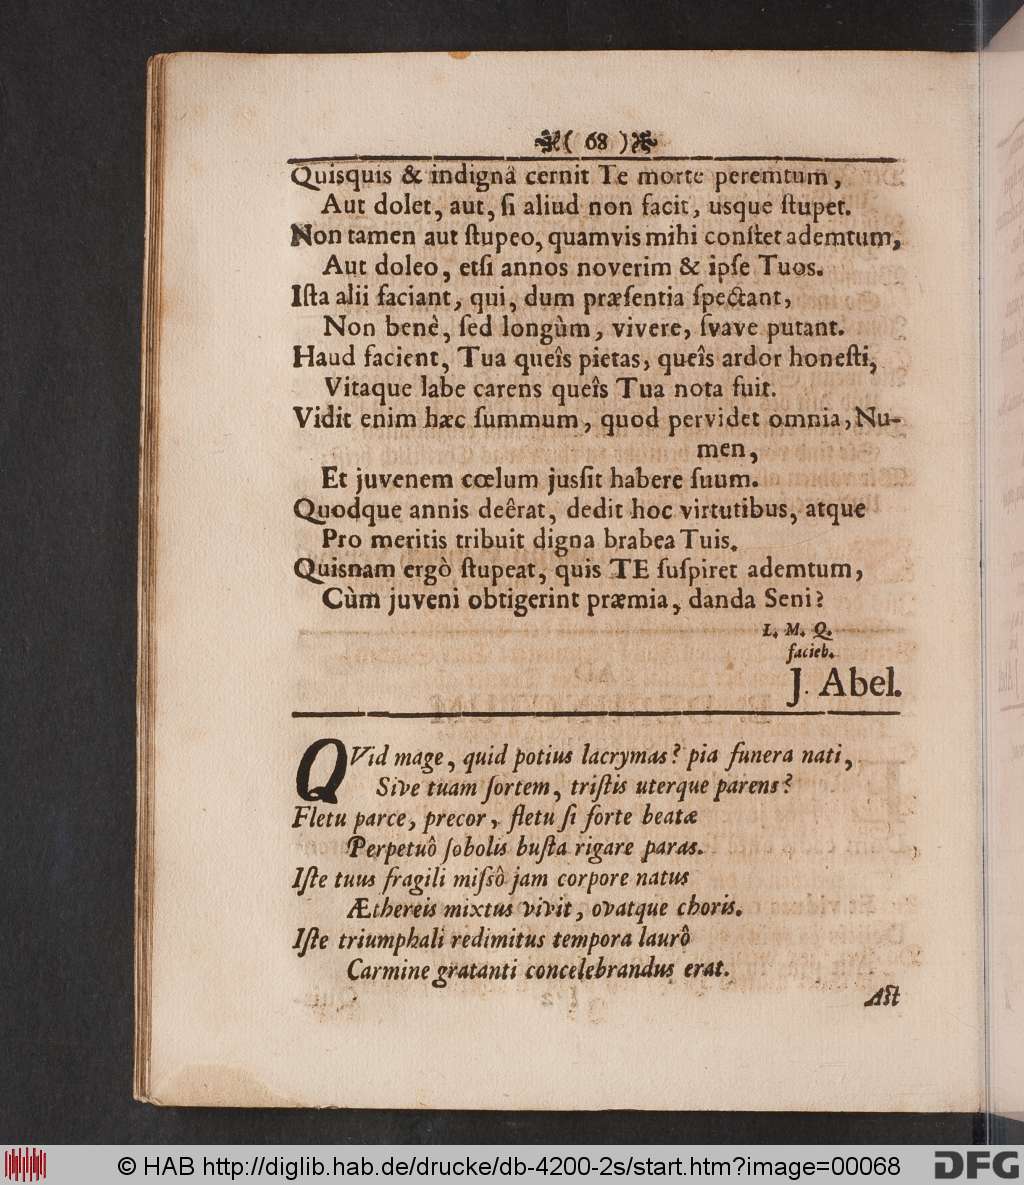 ( 68 )
Quisquis & indignâ cernit Te morte peremtum,
Aut dolet, aut, ſi aliud non facit, usque ſtupet.
Non tamen aut ſtupeo, quamvis mihi conſtet ademtum,
Aut doleo, etſi annos noverim & ipſe Tuos.
Iſta alii faciant, qui, dum præſentia ſpectant,
Non benè, ſed longùm, vivere, ſvave putant.
Haud facient, Tua queîs pietas, queîs ardor honeſti,
Vitaque labe carens queîs Tua nota fuit.
Vidit enim hæc ſummum, quod pervidet omnia, Nu-
men,
Et juvenem cœlum jusſit habere ſuum.
Quodque annis deêrat, dedit hoc virtutibus, atque
Pro meritis tribuit digna brabea Tuis.
Quisnam ergò ſtupeat, quis TE ſuſpiret ademtum,
Cùm juveni obtigerint præmia, danda Seni?
L. M. Q.
facieb.
J. Abel.
QVid mage, quid potius lacrymas? pia funera nati,
Sive tuam ſortem, triſtis uterque parens?
Fletu parce, precor, fletu ſi forte beatæ
Perpetuô ſobolis buſta rigare paras.
Iſte tuus fragili miſsô jam corpore natus
Æthereis mixtus vivit, ovatque choris.
Iſte triumphali redimitus tempora laurô
Carmine gratanti concelebrandus erat.
Aſt
© HAB http://diglib.hab.de/drucke/db-4200-2s/start.htm?image=00068
DFG